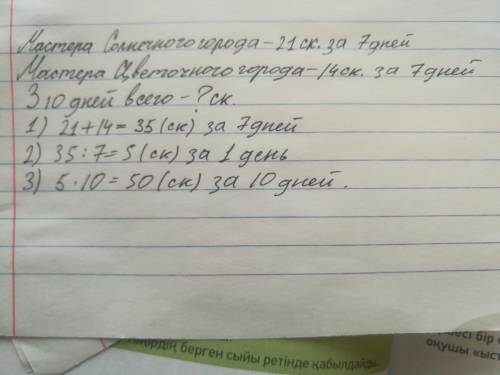 Мастера Солнечного города – 21 ск. за 7 дней
Мастера Цветочного города – 14 ск. за 7 дней
З 10 дней всего – ? ск.
1) 21+14=35 (ск) за 7 дней
2) 35:7=5 (ск) за 1 день
3) 5·10=50 (ск) за 10 дней.
берген сыйы ретінде қабылдайды.
бір
оқушы «ыст